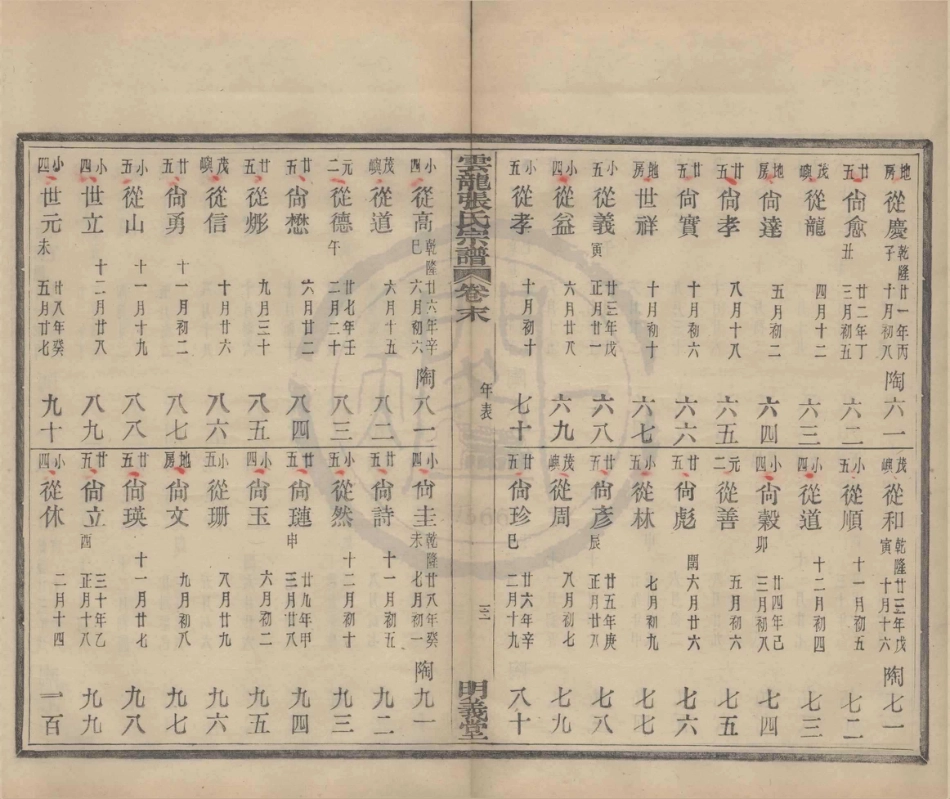 地房從慶乾隆廿一年丙子十月初八陶六一
廿五尙愈廿二年丁丑三月初五六二
茂嶼從龍四月十二六三
地房尙達五月初二六四
廿五尙孝八月十八六五
廿五尙實十月初六六六
地房世祥十月初十六七
小五從義廿三年戊寅正月廿一六八
小四從益六月廿八六九
小五從孝十月初十七十
茂嶼從和乾隆廿三年戊寅十月十六陶七一
小五從順十一月初五七二
小四從道十二月初四七三
小四尙穀廿四年己卯三月初八七四
元二從善五月初六七五
廿五尙彪閏六月廿六七六
小五從林七月初九七七
廿五尙彥廿五年庚辰正月廿八七八
茂嶼從周八月初七七九
廿五尙珍廿六年辛巳二月十九八十
雲龍張氏宗譜 卷末 年表 三二 明義堂
小四從高乾隆廿六年辛巳六月初六陶八一
茂嶼從道六月十五八二
元二從德廿七年壬午二月二十八三
廿五尙懋六月初二八四
廿五從彨九月三十八五
茂嶼從信十月廿六八六
廿五尙勇十一月初二八七
小五從山十一月十九八八
小四世立十二月廿八八九
小四世元廿八年癸未五月廿七九十
小四尙圭乾隆廿八年癸未七月初一陶九一
廿五尙詩十一月初五九二
小五從然十二月初十九三
廿五尙璉廿九年甲申三月廿八九四
小四尙玉六月初二九五
小五從珊八月廿九九六
地房尙文九月初八九七
廿五尙瑛十一月廿七九八
廿五尙立三十年乙酉正月十八九九
小四從休二月十四一百